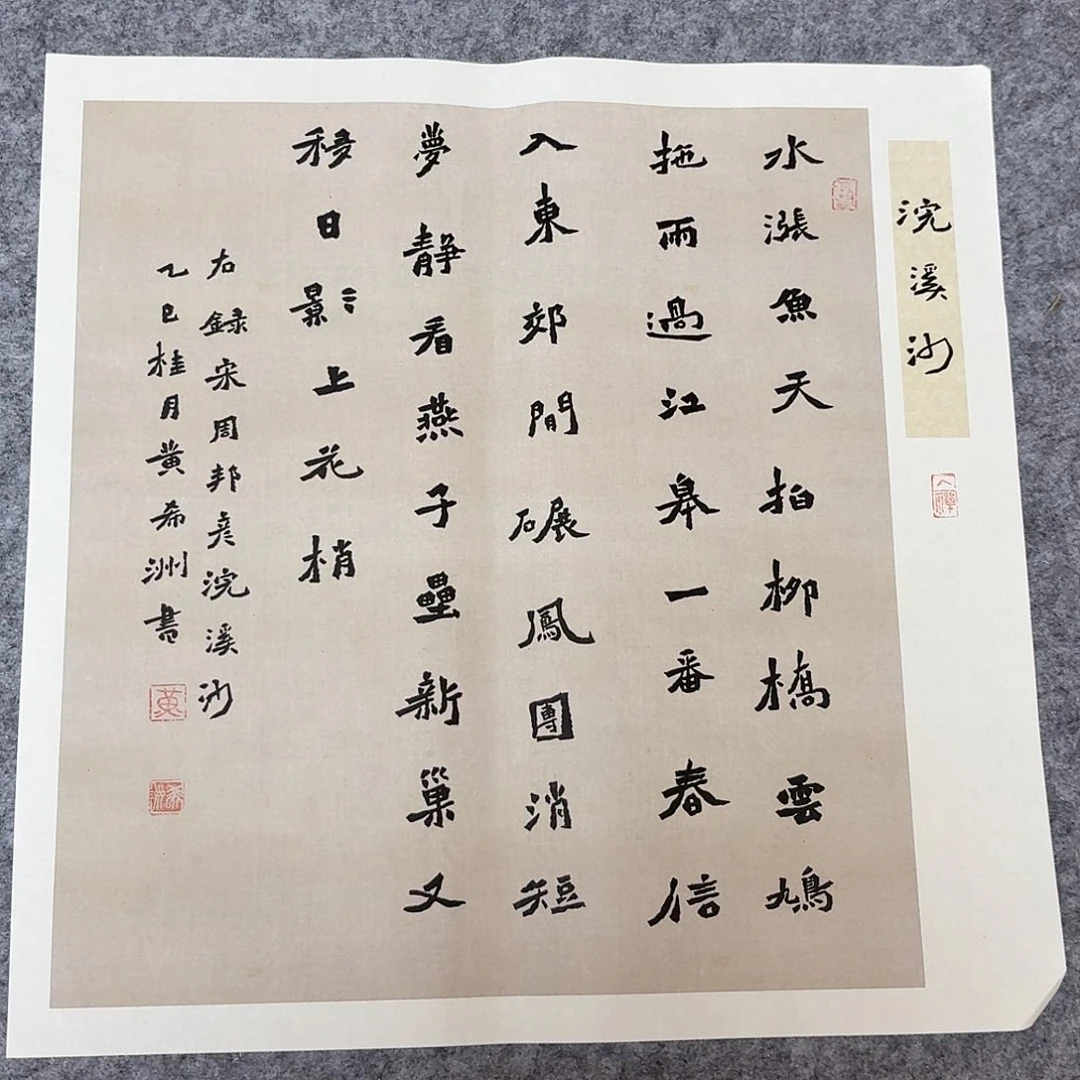 浣溪沙
水漲魚天拍柳橋雲鳩
拖雨過江皋一番春信
入東郊間碾鳳團消短
夢靜看燕子壘新巢又
移日影〻上花梢
右録宋周邦彦浣溪沙
乙巳桂月黄希洲書
黄